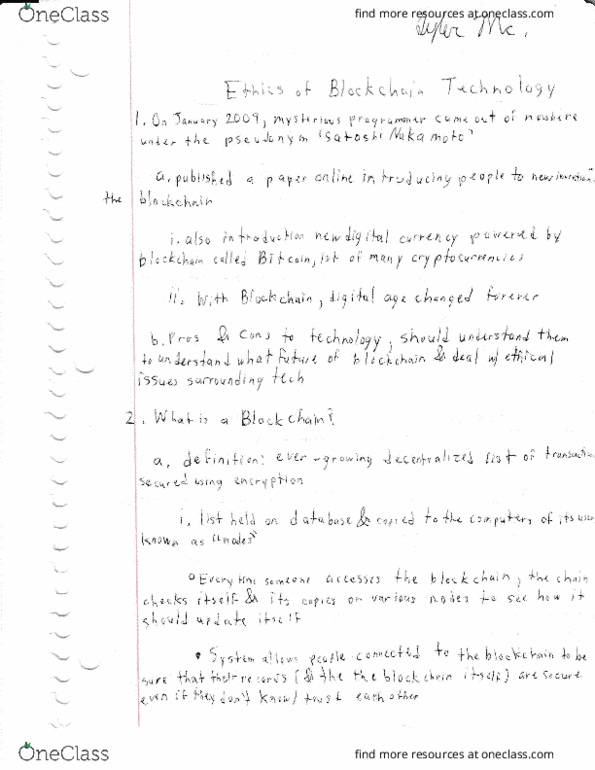 OneClass
find more resources at oneclass.com
Tyler Mc.
Ethics of Blockchain Technology
1. On January 2009, mysterious programmer came out of nowhere
under the pseudonym "Satoshi Nakamoto"
a. published a paper online introducing people to new invention:
the blockchain
i. also introduction new digital currency powered by
blockchain called Bitcoin, 1st of many cryptocurrencies
ii. With Blockchain, digital age changed forever
b. Pros & Cons to technology, should understand them
to understand what future of blockchain & deal w/ ethical
issues surrounding tech
2. What is a Blockchain?
a. definition: ever-growing decentralized list of transactions
secured using encryption
i. list held on database & copied to the computers of its users
known as "nodes"
Every time someone accesses the blockchain, the chain
checks itself & its copies on various nodes to see how it
should update itself
• System allows people connected to the blockchain to be
sure that their records (& the the blockchain itself) are secure
even if they don't know/trust each other
OneClass
find more resources at oneclass.com